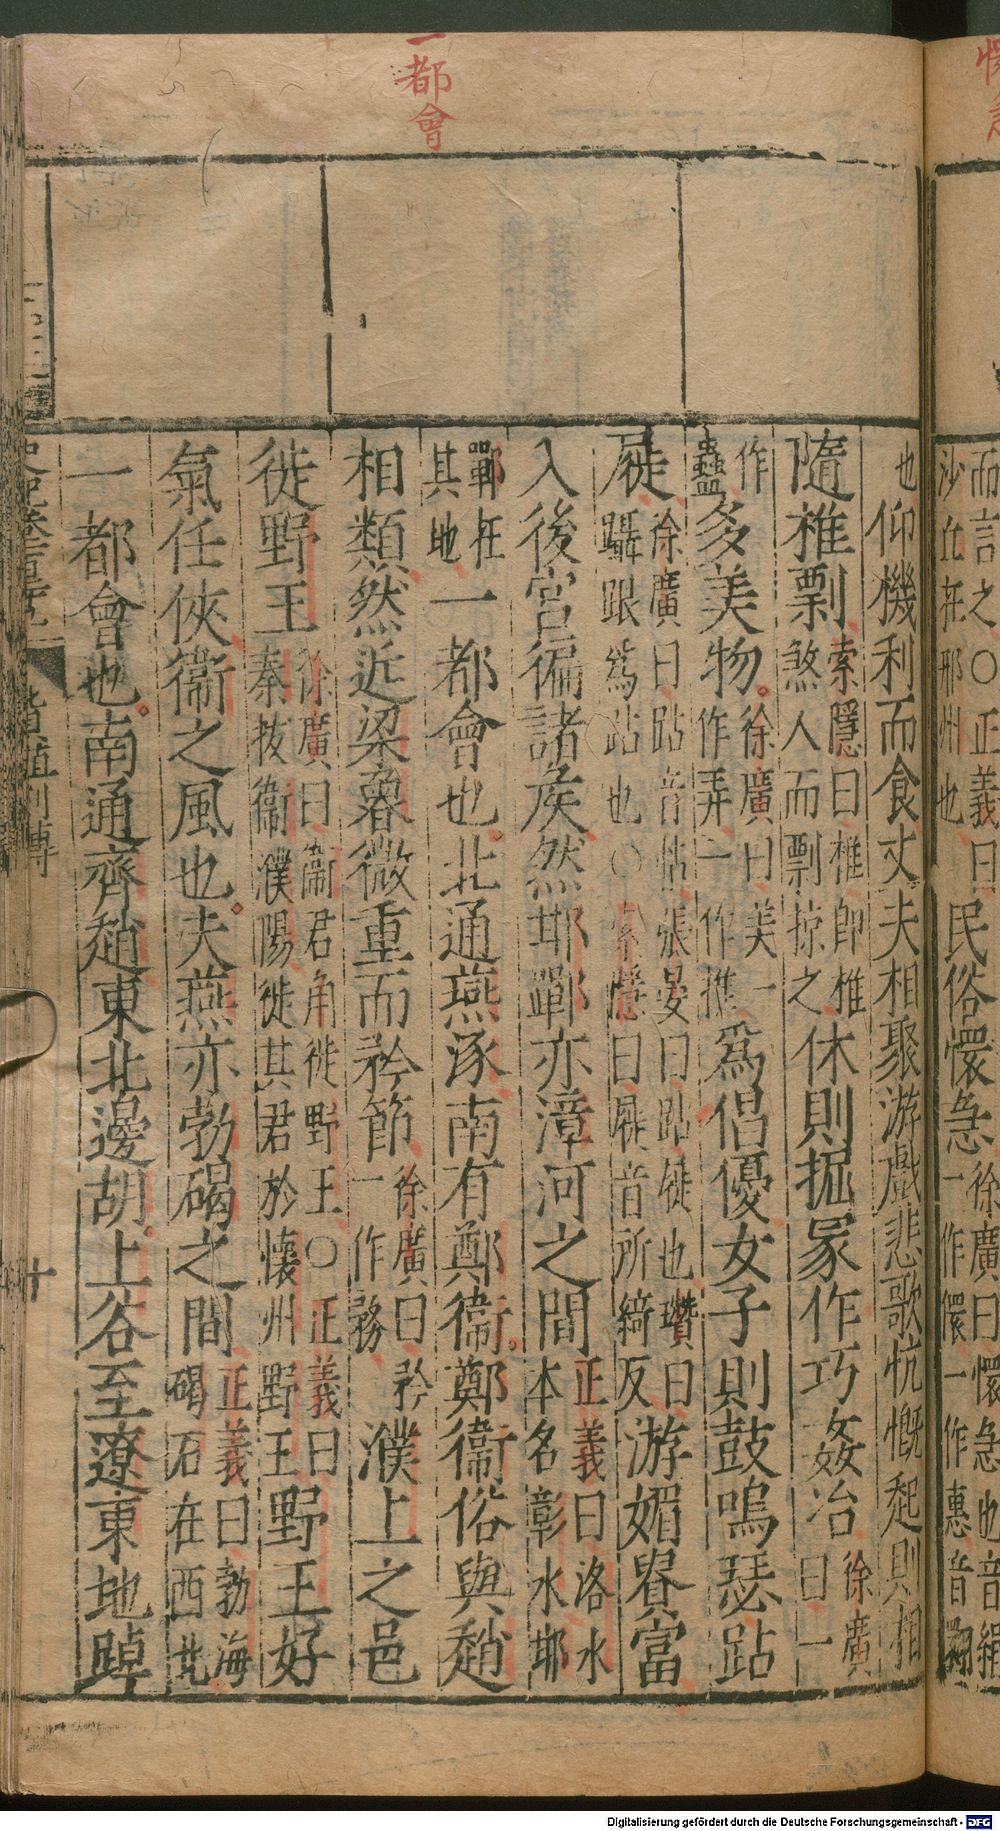 而言之〇正義曰
沙丘在邢州也
民俗懷急
徐廣曰懷急也音絹
一作儇一作惠音翾
一都會
也
仰機利而食丈夫相聚游戲悲歌忼慨起則相
隨椎剽
索隱曰椎即椎
煞人而剽掠之
休則掘冢作巧姦冶
徐廣
曰一
作
蠱
多美物
徐廣曰美一
作弄一作推
爲倡優女子則鼓鳴瑟跕
屣
徐廣曰跕音帖張晏曰跕屣也瓚曰
躡跟爲跕也〇索隱曰屣音所綺反
游媚貴富
入後宮徧諸侯然邯鄲亦漳河之間
正義曰洛水
本名彰水邯
鄲在
其地
一都會也北通燕涿南有鄭衛鄭衛俗與趙
相類然近梁魯微重而矜節
徐廣曰矜
一作務
濮上之邑
徙野王
徐廣曰衛君角徙野王〇正義曰
秦拔衛濮陽徙其君於懷州野王
野王好
氣任俠衛之風也夫燕亦勃碣之間
正義曰勃海
碣石在西北
一都會也南通齊趙東北邊胡上谷至遼東地踔
十
Digitalisierung gefördert durch die Deutsche Forschungsgemeinschaft - DFG